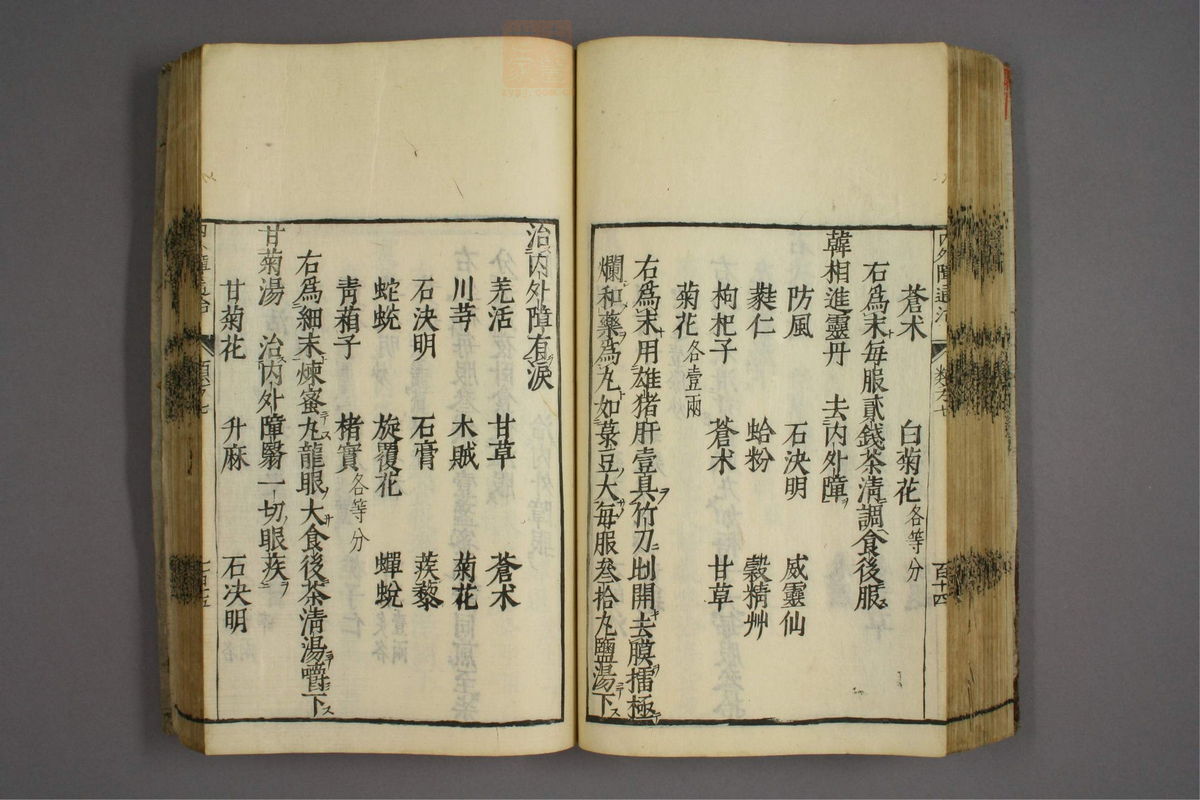 蒼术 白菊花各等分
右爲末每服貳錢茶淸調食後服
韓相進靈丹 去内外障
防風 石決明 威靈仙
蕤仁 蛤粉 穀精艸
枸杞子 蒼术 甘草
菊花各壹兩
右爲末用雄猪肝壹具竹刀批開去膜擂極
爛和藥爲丸如菉豆大每服叁拾丸鹽湯下
治内外障有淚
羌活 甘草 蒼术
川芎 木賊 菊花
石決明 石膏 蒺藜
蛇蛻 旋覆花 蟬蛻
靑葙子 楮實各等分
右爲細末煉蜜丸龍眼大食後茶清湯嚼下
甘菊湯 治内外障翳一切眼疾
甘菊花 升麻 石决明